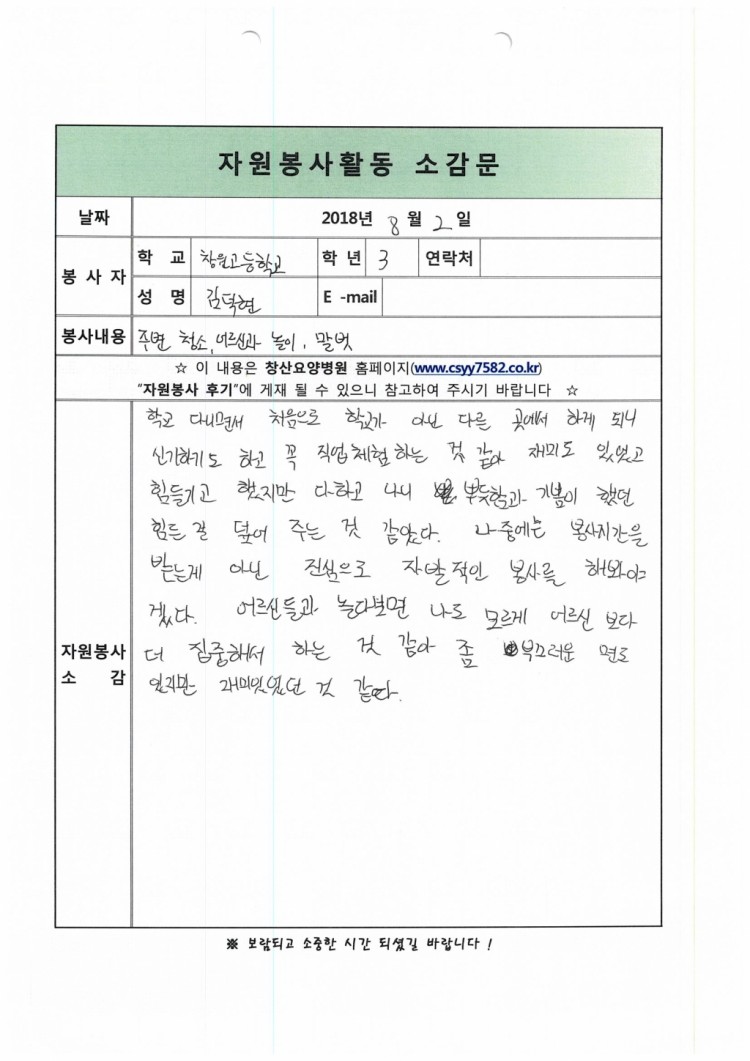 자원봉사활동 소감문
날짜 2018년 8월 2일
봉사자 학교 창원고등학교 학년 3 연락처
성명 김덕현 E-mail
봉사내용 주변 청소, 어르신과 놀이, 말벗
☆ 이 내용은 창산요양병원 홈페이지(www.csyy7582.co.kr)
"자원봉사 후기"에 게재 될 수 있으니 참고하여 주시기 바랍니다 ☆
자원봉사
소감
학교 다니면서 처음으로 학교가 아닌 다른 곳에서 하게 되니
신기하기도 하고 꼭 직업체험 하는 것 같아 재미도 있었고
힘들기고 했지만 다하고 나니 뿌듯함과 기쁨이 했던
힘든 걸 덮어 주는 것 같았다. 나중에는 봉사시간을
받는게 아닌 진심으로 자발적인 봉사를 해봐야
겠다. 어르신들과 놀다보면 나도 모르게 어르신 보다
더 집중해서 하는 것 같아 좀 부끄러운 면도
있지만 재미있었던 것 같다.
※ 보람되고 소중한 시간 되셨길 바랍니다 !